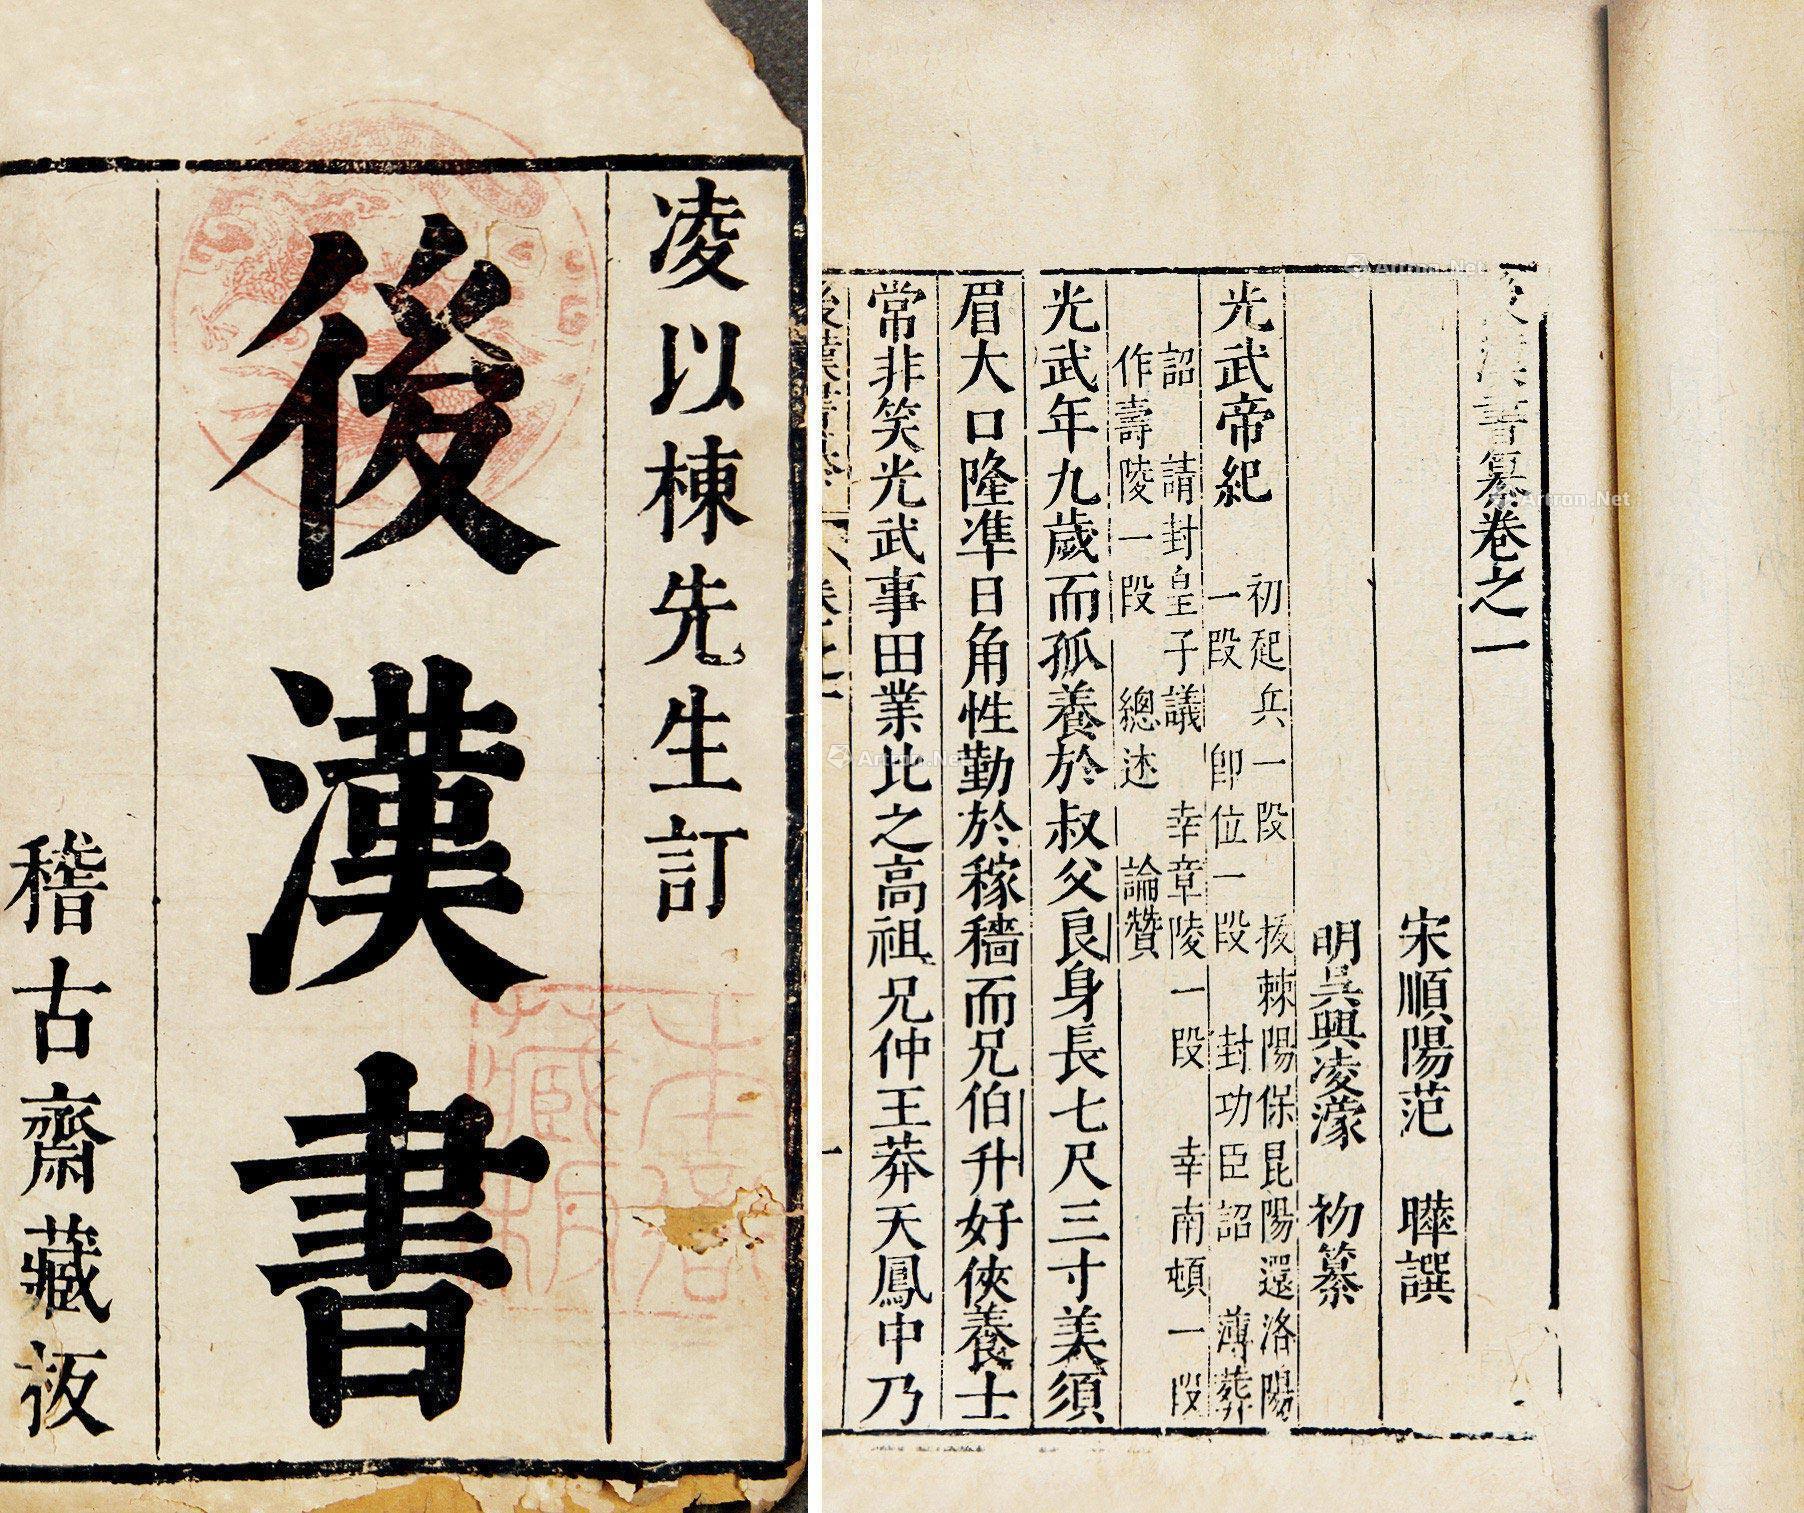 凌以棟先生訂
後漢書
稽古齋藏板
後漢書纂卷之一
宋順陽范 曄譔
明吳興凌濛 初纂
光武帝紀 初起兵一段 拔棘陽保昆陽還洛陽
一段 即位一段 封功臣詔 薄葬
詔 請封皇子議 幸章陵一段 幸南頓一段
作壽陵一段 總述 論贊
光武年九歲而孤養於叔父良身長七尺三寸美須
眉大口隆準日角性勤於稼穡而兄伯升好俠養士
常非笑光武事田業比之高祖兄仲王莽天鳳中乃
Artron.Net
Artron.Net
Artron.Net